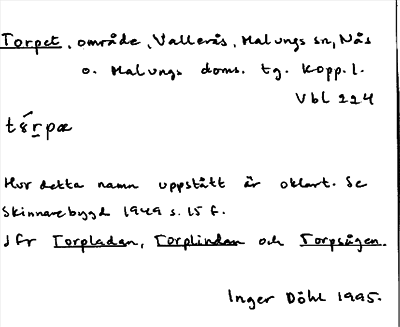 Torpet, område, Vallerås, Malungs sn, Nås
o. Malungs doms. tg. Kopp. l.
Vbl 224
tɛ́rpæ
Hur detta namn uppstått är oklart. Se
Skinnarebygd 1949 s. 15 f.
Jfr Torpladan, Torplindan och Torpsågen.
Inger Döhl 1995.